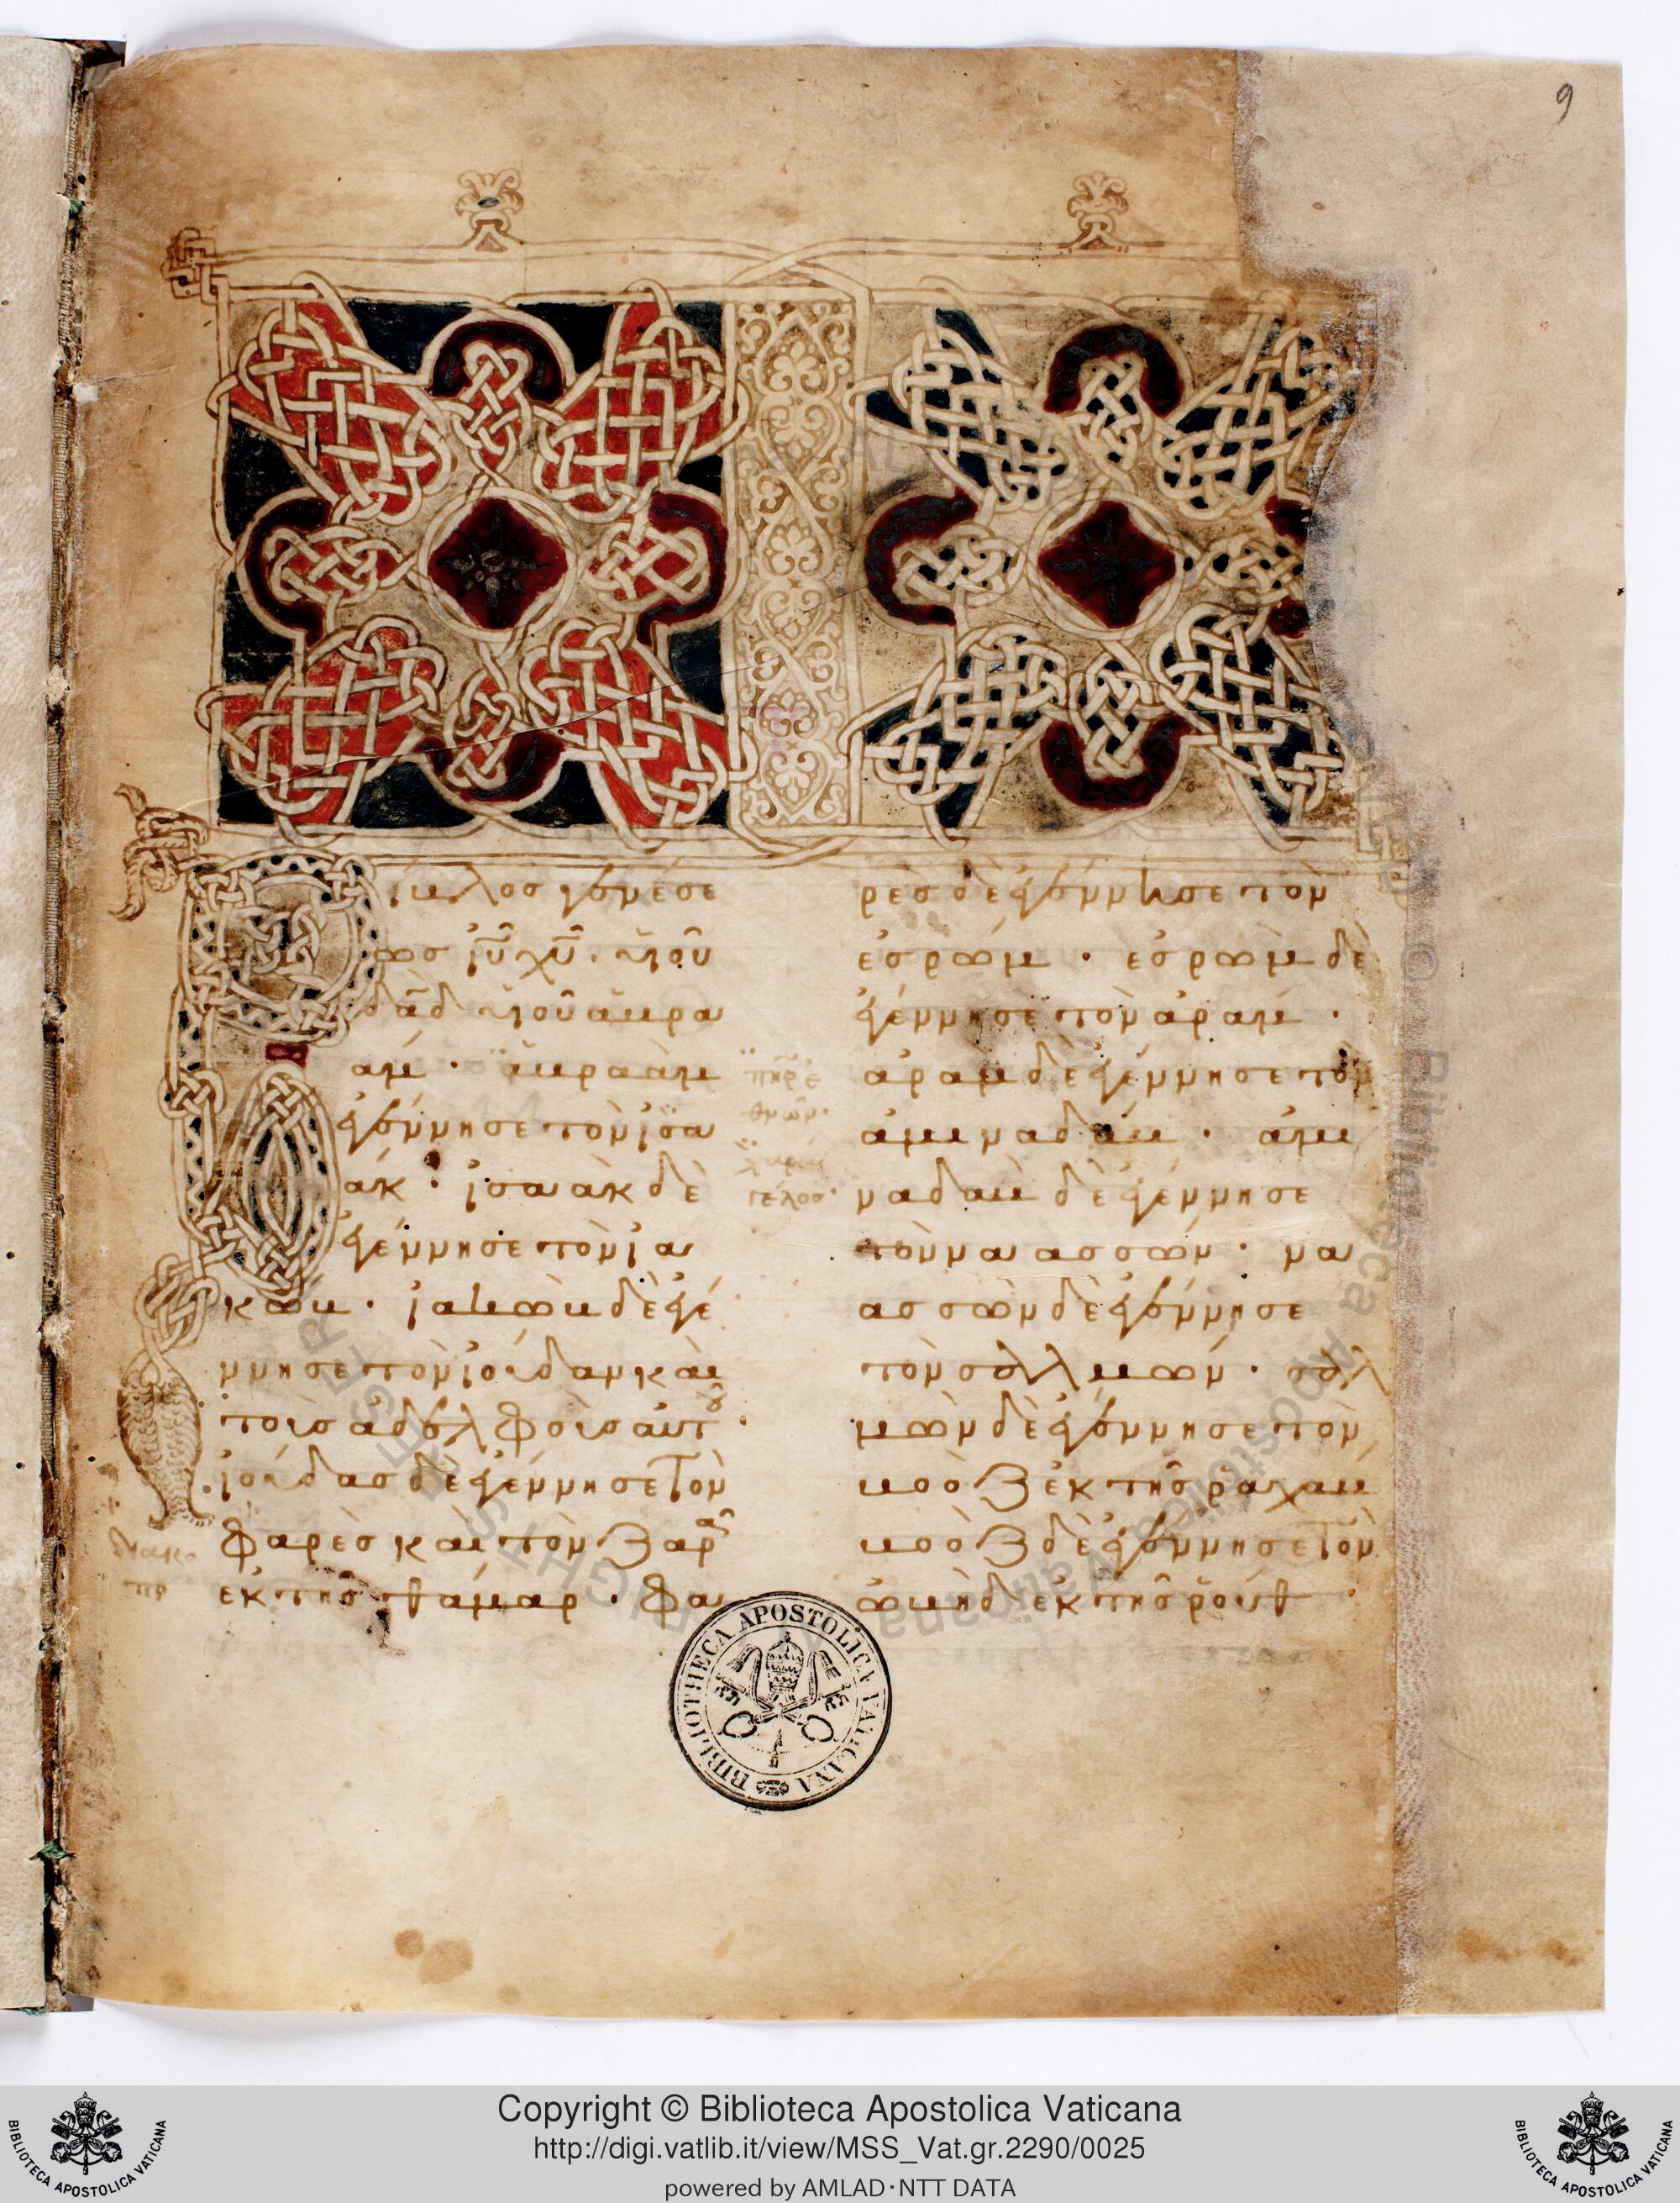 9
Βίβλος γενέσε
ως ἰυ̅ χυ̅. υἱοῦ
δα̅δ υἱοῦ ἀβρα
άμ · ἀβραὰμ
ἐγέννησε τὸν ἰσα
άκ · ἰσαὰκ δὲ
ἐγέννησε τὸν ἰα
κώβ · ἰακὼβ δὲ ἐγέ
ννησε τὸν ἰούδαν καὶ
τοὺσ ἀδελφοὺσ αὐτου ·
ἰούδασ δὲ ἐγέννησε τὸν
φαρὲσ καὶ τὸν ζαρα
ἐκ τῆσ θάμαρ · φα
τέλοσ·
ρὲσ δὲ ἐγέννησε τὸν
ἐσρώμ · ἐσρὼμ δὲ
ἐγέννησε τὸν ἀράμ ·
ἀρὰμ δὲ ἐγέννησε τὸν
ἀμιναδάβ · ἀμι
ναδὰβ δὲ ἐγέννησε
τὸν ναασσών · να
ασσὼν δὲ ἐγέννησε
τὸν σαλμών · σαλ
μὼν δὲ ἐγέννησε τὸν
βοὸζ ἐκ τῆσ ραχάβ
βοὸζ δὲ ἐγέννησε τὸν
ὠβὴδ ἐκ τῆσ ρούθ ·
BIBLIOTHECA APOSTOLICA VATICANA
Copyright © Biblioteca Apostolica Vaticana
http://digi.vatlib.it/view/MSS_Vat.gr.2290/0025
powered by AMLAD·NTT DATA
BIBLIOTECA APOSTOLICA VATICANA
BIBLIOTECA APOSTOLICA VATICANA